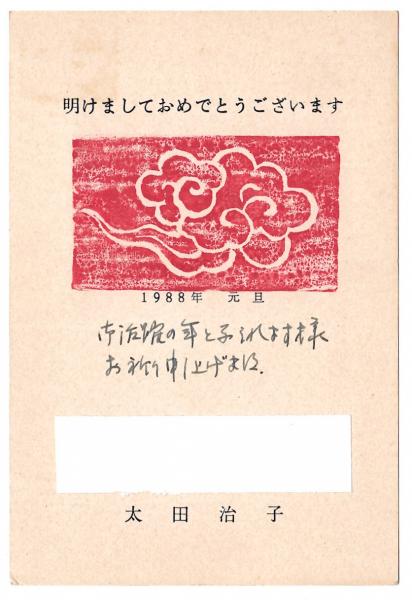 明けましておめでとうございます
1988年 元旦
御活躍の年と なられます様
お祈り申し上げます.
太田治子